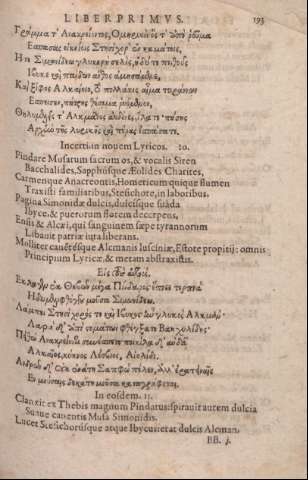 LIBER PRIMVS. 193
Γράμμα τ' Ἀνακρείοντος, Ὁμηρικὸν ὅς τ' ἀπὸ ῥεῦμα
Ἔσπασας οἰκείοις Στησίχορ' ἐν καμάτοις,
Ἥ τε Σιμωνίδεω γλυκερὴ σελὶς, ἡδύ τε πειθοῦς
Ἴβυκε καὶ παίδων ἄνθος ἀμησάμενε,
Καὶ ξίφος Ἀλκαίοιο, τὸ πολλάκις αἷμα τυράννων
Ἔσπεισεν, πάτρης θέσμια ῥυόμενον,
Θηλυμελεῖς τ' Ἀλκμᾶνος ἀηδόνες, ἵλατε, πάσης
Ἀρχὴν οἳ λυρικῆς καὶ πέρας ἐστάσατε.
Incerti in nouem Lyricos. 10.
Pindare Musarum sacrum os, & vocalis Siren
Bacchalides, Sapphúsque Æolides Charites,
Carmenque Anacreontis, Homericum quique flumen
Traxisti familiaribus, Stesichore, in laboribus.
Pagina Simonidæ dulcis, dulcisque suada
Ibyce, & puerorum florem decerpens,
Ensis & Alcæi, qui sanguinem sæpe tyrannorum
Libauit patriæ iura liberans.
Molliter canētésque Alcmanis lusciniæ, Estote propitij: omnis
Principium Lyricæ, & metam abstraxistis.
Εἰς τοὺς αὐτούς.
Ἔκλαγεν ἐκ Θηβῶν μέγα Πίνδαρος· ἔπνεε τερπνὰ
Ἡδυμελιφθόγγου μοῦσα Σιμωνίδεω.
Λάμπει Στησίχορός τε καὶ Ἴβυκος· ἦν γλυκὺς Ἀλκμάν·
Λαρὰ δ' ἀπὸ στομάτων φθέγξατο Βακχυλίδης·
Πειθὼ Ἀνακρείοντι συνέσπετο· ποικίλα δ' αὐδᾷ
Ἀλκαῖος, κύκνος Λέσβιος, Αἰολίδι.
Ἀνδρῶν δ' οὐκ ἐνάτη Σαπφὼ πέλεν, ἀλλ' ἐρατειναῖς
Ἐν μούσαις δεκάτη μοῦσα καταγράφεται.
In eosdem. 11.
Clanxit ex Thebis magnum Pindarus: spirauit autem dulcia
Suaue canentis Musa Simonidis.
Lucet Stesichorúsque atque Ibycus: erat dulcis Alcman.
BB. j.